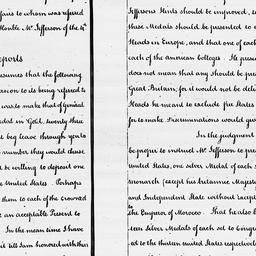 ffairs to whom was referred
Honble Mr Jefferson of the 14th
eports
esumes that the following
reason to its being referred to
wards make that of General
edal in Gold, twenty three
d beg leave through you to
number they would chuse
be willing to deposit one
e United States. Perhaps
them to each of the crowned
e an acceptable Present to
In the mean time I have
it till I am honored with their
Jeffersons Hints should be improved, t
these Medals should be presented to
Heads in Europe, and that one of each
each of the american Colleges. He presum
does not mean that any should be pre
Great Britain, for it would not be deli
Heads he meant to exclude free States
for to make Discriminations would giv
In the Judgment
be proper to instruct Mr Jefferson to pre
united States, one Silver Medal of each
monarch (except his britannic Majesty
and Independent State without except
to the Emperor of Morocco. That he also
teen Silver Medals of each set to Congress
ed to the thirteen United States respectively